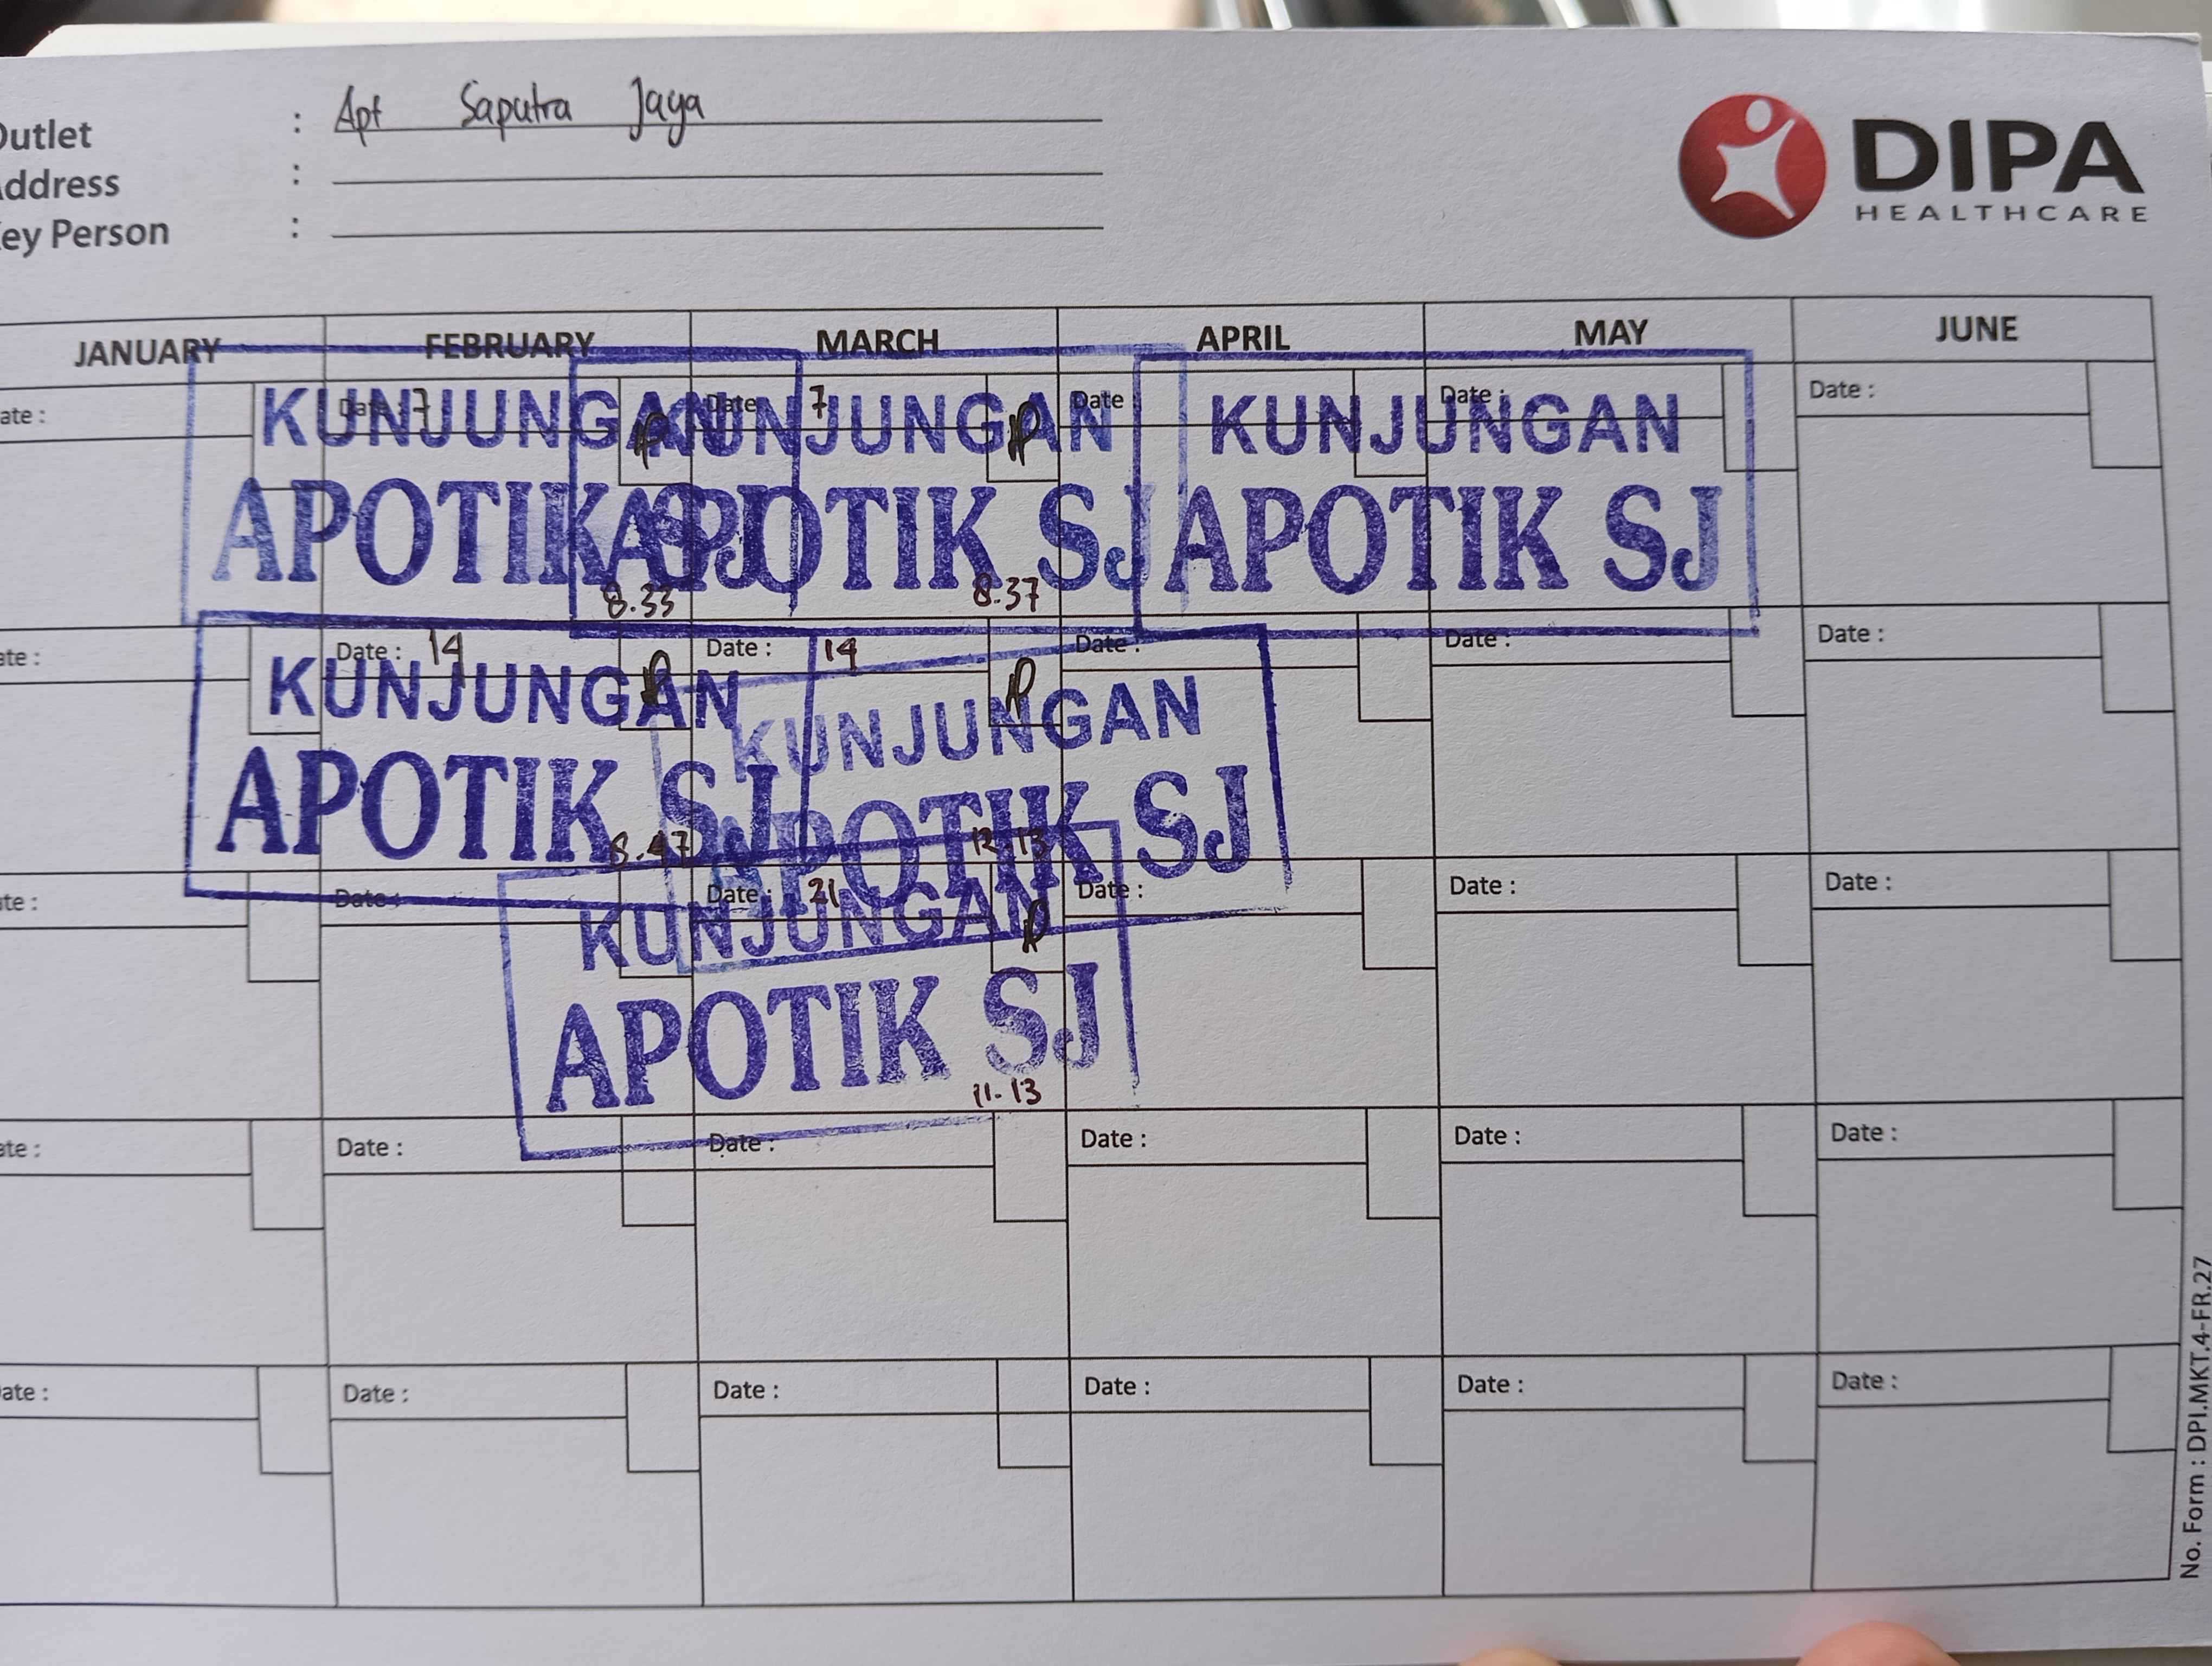 Outlet : Apt Saputra Jaya
Address :
Key Person :
DIPA
HEALTHCARE
JANUARY FEBRUARY MARCH APRIL MAY JUNE
Date : Date : 7 Date 7 Date Date : Date :
KUNJUNGAN KUNJUNGAN KUNJUNGAN
APOTIK SJ APOTIK SJ APOTIK SJ
8.33 8.37
Date : Date : 14 Date : 14 Date : Date : Date :
KUNJUNGAN KUNJUNGAN
APOTIK SJ APOTIK SJ
8.47 12.13
Date : Date : Date : 21 Date : Date : Date :
KUNJUNGAN
APOTIK SJ
11.13
Date : Date : Date : Date : Date : Date :
Date : Date : Date : Date : Date : Date :
No. Form : DPI.MKT.4-FR.27